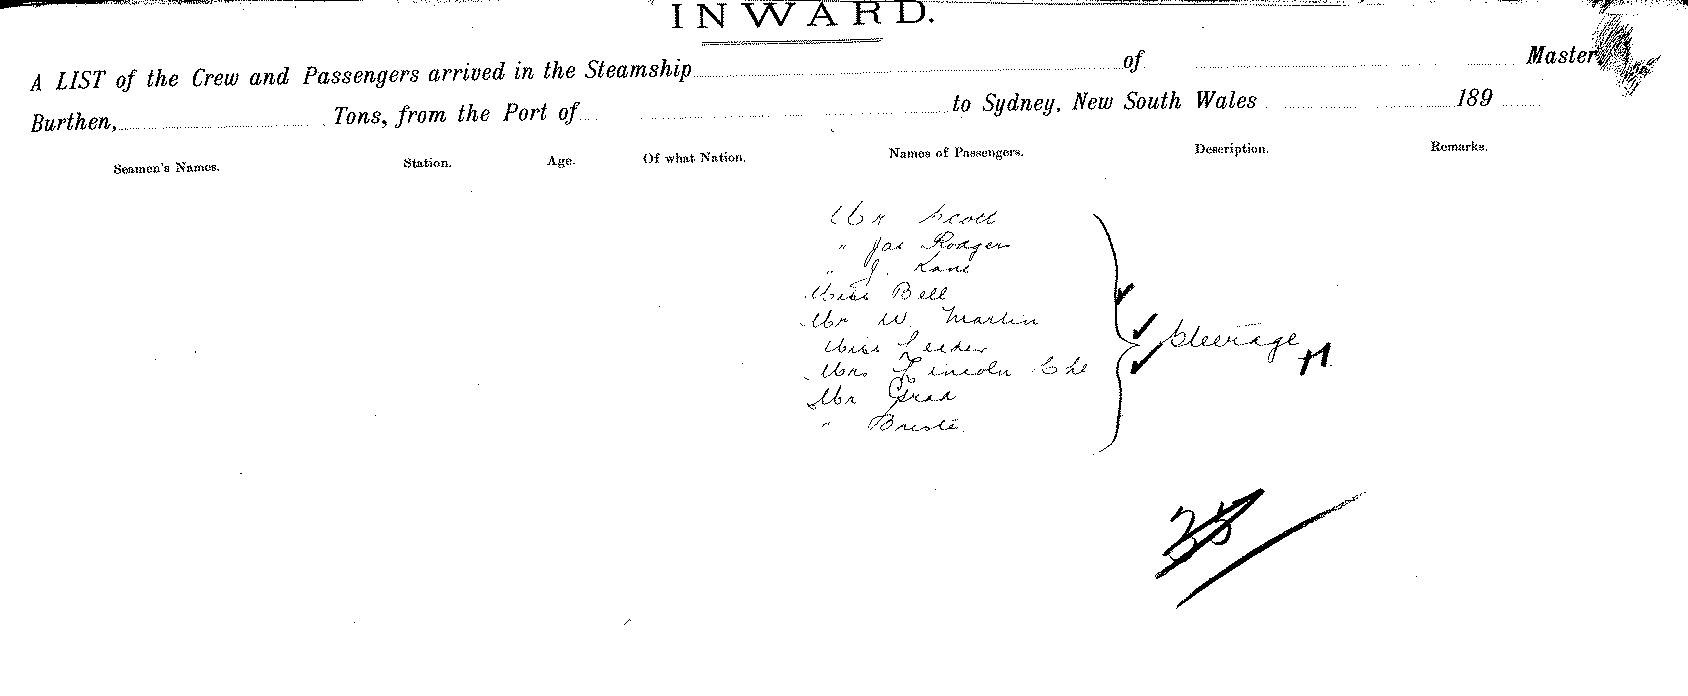 INWARD.
A LIST of the Crew and Passengers arrived in the Steamship of Master,
Burthen, Tons, from the Port of to Sydney, New South Wales 189
Seamen's Names. Station. Age. Of what Nation. Names of Passengers. Description. Remarks.
Mr Scott
" Jas Rodgers
" J. Kane
Miss Bell
Mr W. Martin
Miss
Mrs Lincoln
Mr
"
Steerage